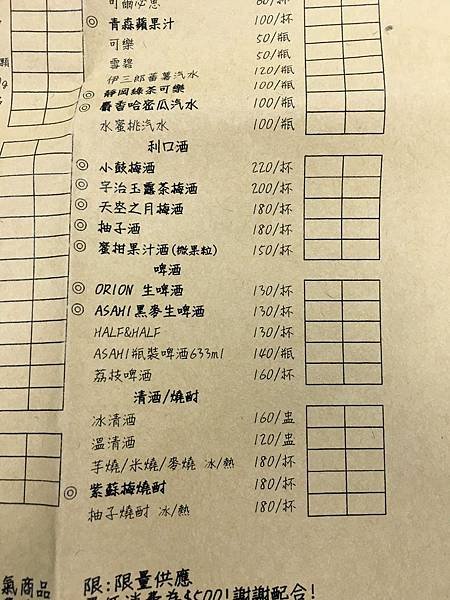 可爾必思 80/杯
◎ 青森蘋果汁 100/杯
可樂 50/瓶
雪碧 50/瓶
伊三郎蕃薯汽水 120/瓶
◎ 靜岡綠茶可樂 100/瓶
◎ 麝香哈密瓜汽水 100/瓶
水蜜桃汽水 100/瓶
利口酒
◎ 小鼓梅酒 220/杯
◎ 宇治玉露茶梅酒 200/杯
◎ 天空之月梅酒 180/杯
◎ 柚子酒 180/杯
◎ 蜜柑果汁酒(微果粒) 150/杯
啤酒
◎ ORION 生啤酒 130/杯
◎ ASAHI黑麥生啤酒 130/杯
HALF&HALF 130/杯
ASAHI瓶裝啤酒633ml 140/瓶
荔枝啤酒 160/杯
清酒/燒酎
冰清酒 160/盅
溫清酒 120/盅
芋燒/米燒/麥燒 冰/熱 180/杯
◎ 紫蘇梅燒酎 180/杯
柚子燒酎 冰/熱 180/杯
氣商品
限:限量供應
低消費為$500!謝謝配合!